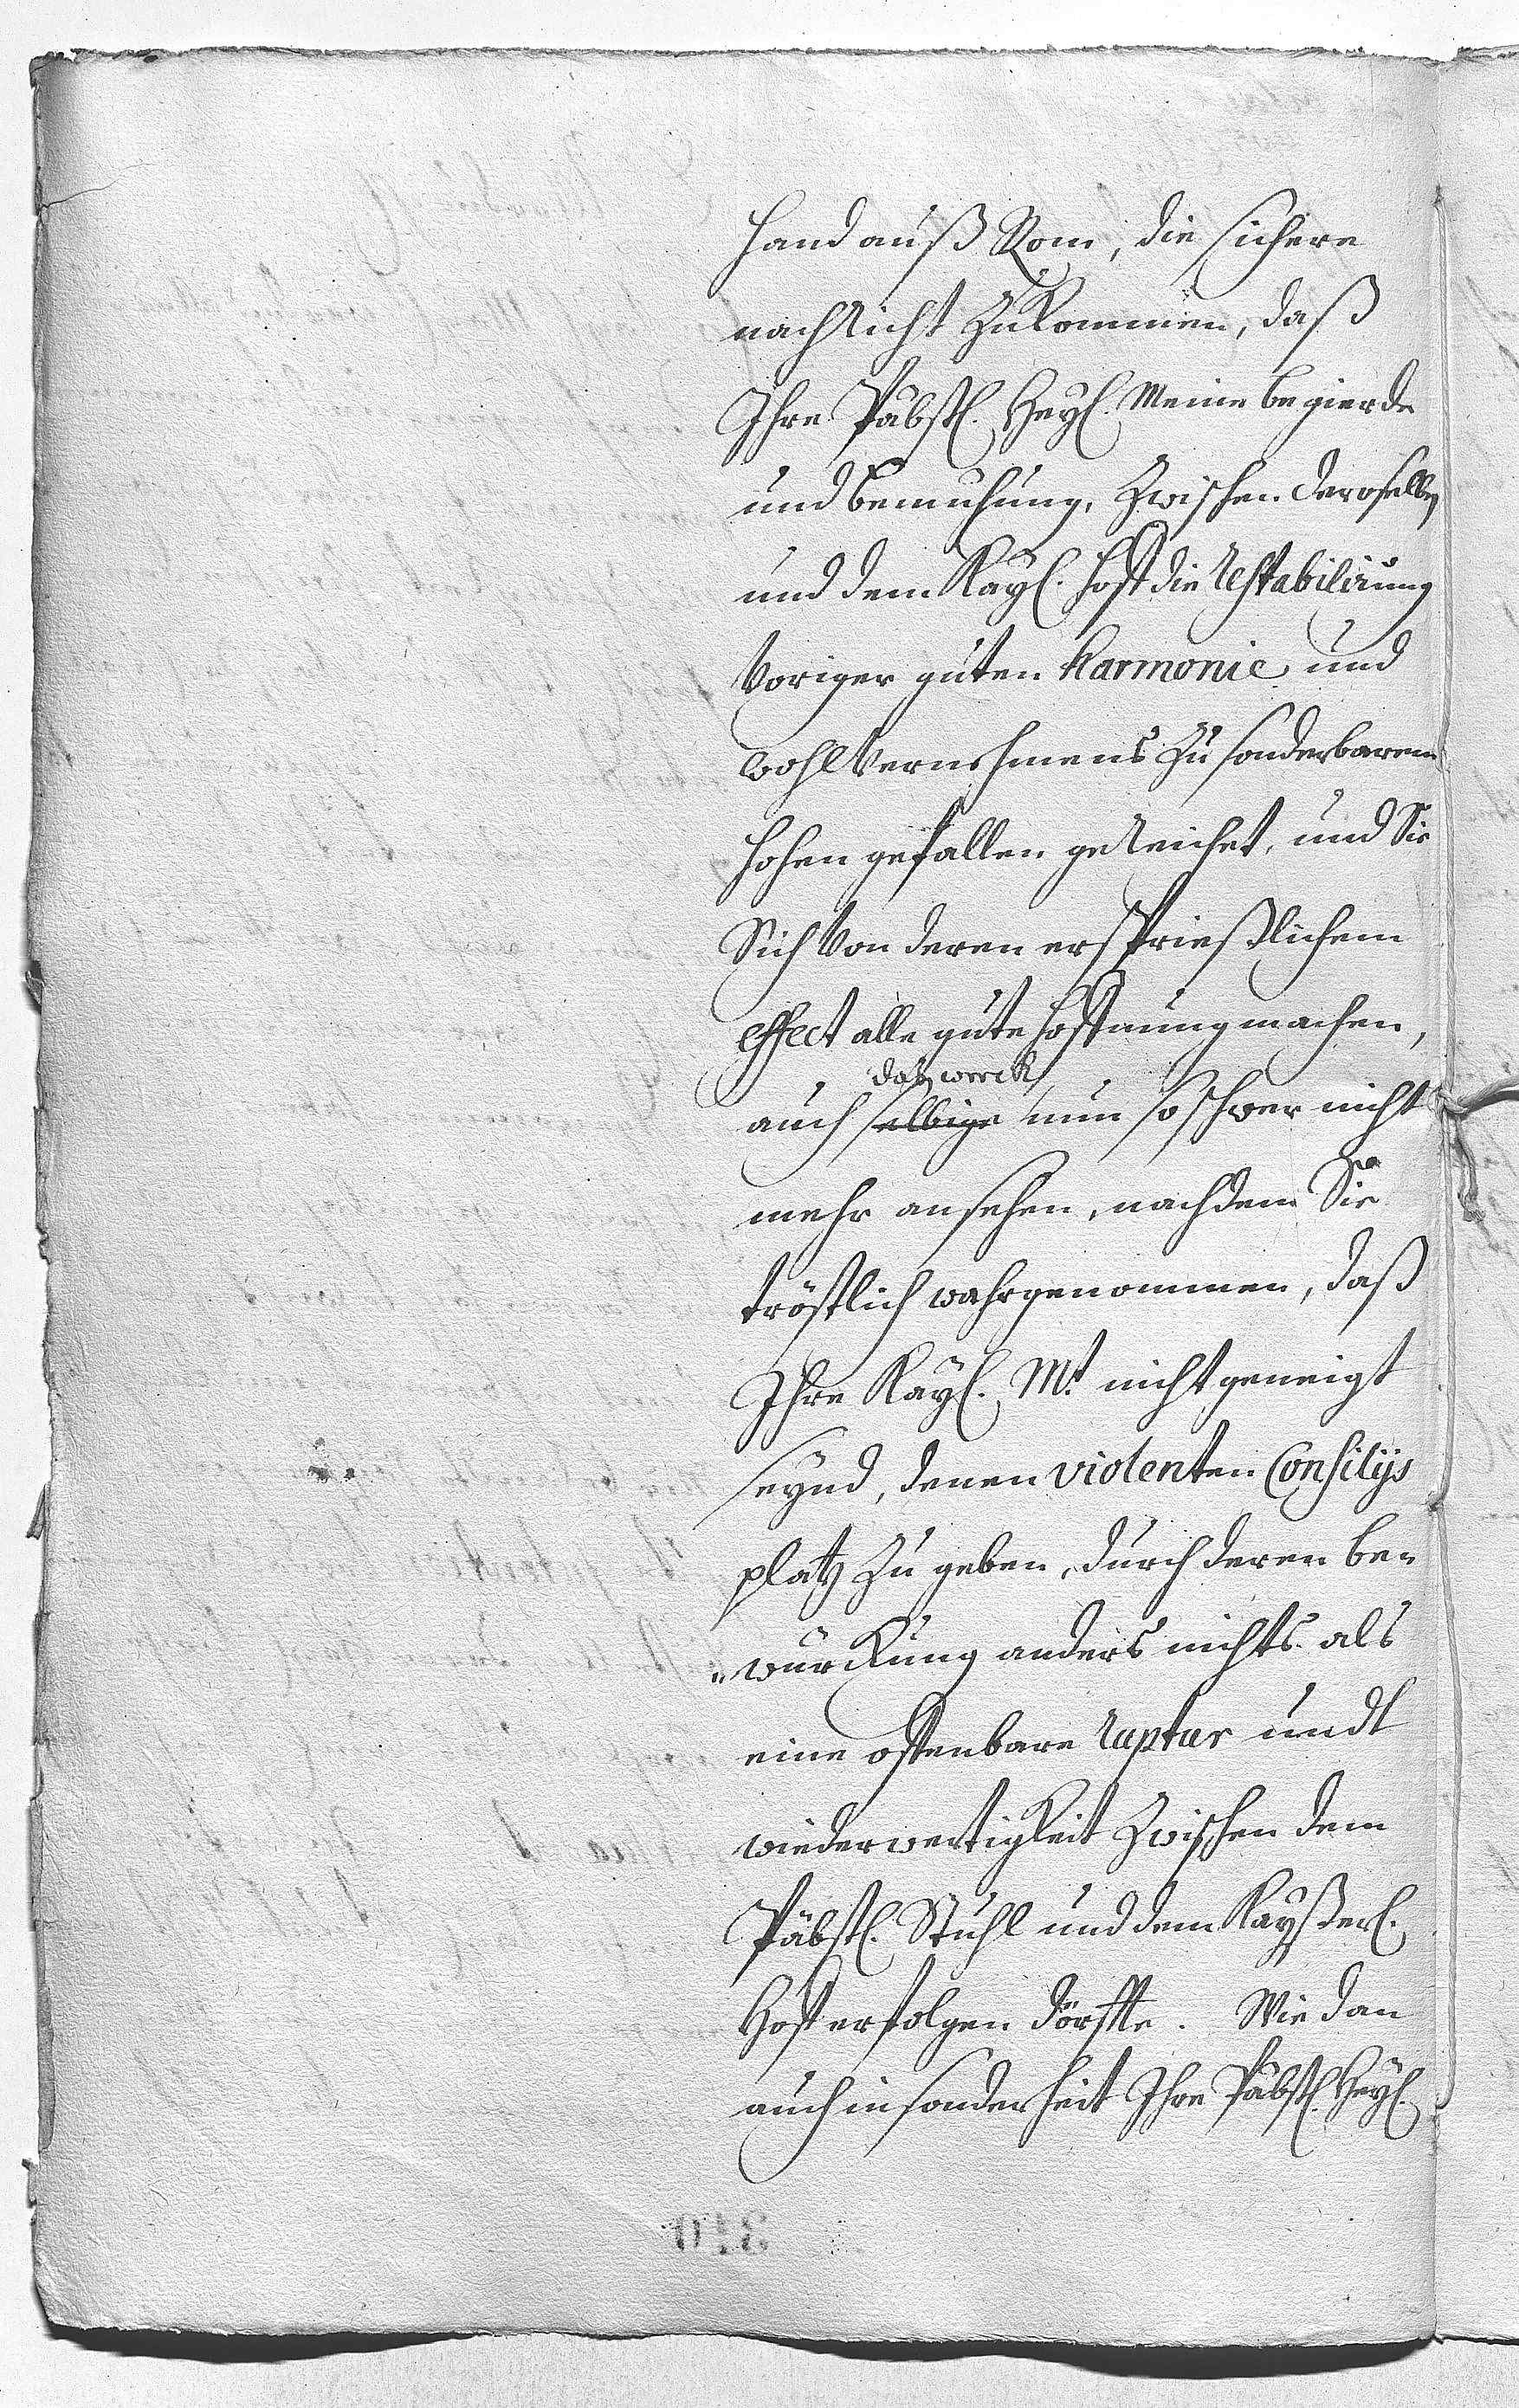 hand auß Rom, die sichere
nachricht zukommen, daß
Ihre Päbstl. Heyl. Meine begierde
und bemuhung, zwischen deroselben
und dem Kayl. hoff die restabilirung
voriger guten harmonie und
wohlvernehmens zu sonderbarem
hohen gefallen gereichet, und Sie
Sich von deren ersprießlichem
effect alle gute hoffnung machen,
das werck
auch selbige nun so schwer nicht
mehr ansehen, nachdem Sie
tröstlich wahrgenommen, daß
Ihre Kayl. Mt. nicht geneigt
seynd, denen violenten Consilijs
platz zu geben, durch deren be-
„würckung anders nichts als
eine offenbare ruptur undt
wiederwertigkeit zwischen dem
Päbstl. Stuhl und dem Kayßerl.
Hoff erfolgen dörffte. Wie dan
auch in sonderheit Ihre Päbstl. Heyl.